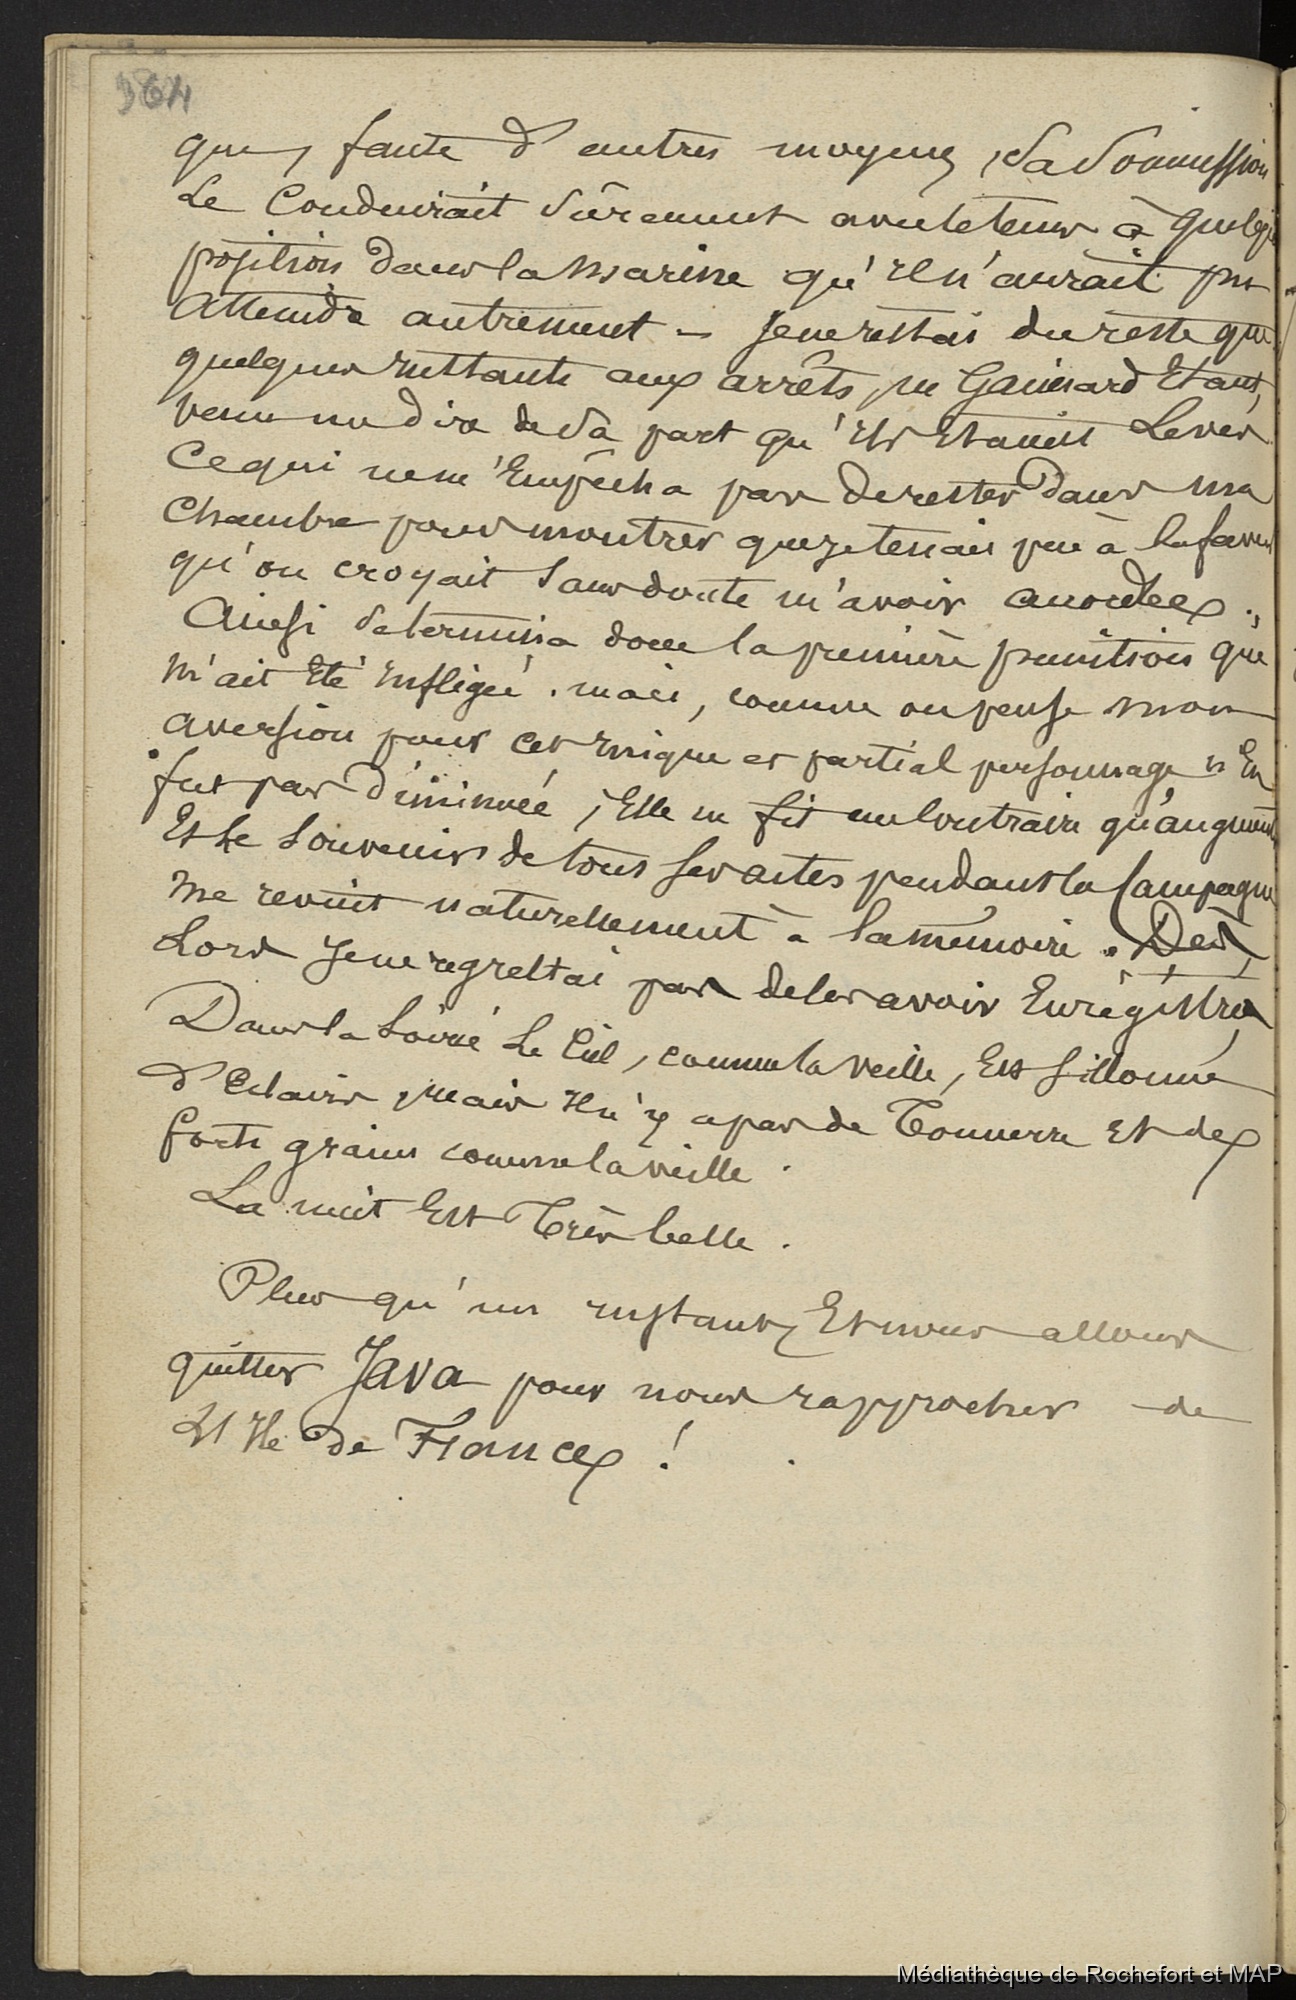 364
que, faute d'autres moyens, sa soumission
Le Conduirait sûrement avec le tems à quelque
position dans la Marine qu'il n'aurait pu
atteindre autrement – Je ne restai du reste que
quelques instants aux arrêts, Mr Gaimard Etant,
venu me dire de sa part qu'ils Etaient Levés
Ce qui ne m'Empêcha pas de rester dans ma
Chambre pour montrer que je tenais peu à la faveur
qu'on croyait sans doute m'avoir accordée.
Ainsi se termina donc la première punition qui
m'ait Eté infligée. mais, comme on pense mon
aversion pour cet inique et partial personnage n'En
fut pas diminuée, Elle ne fit au Contraire qu'augmenter
Et Le Souvenir de tous ses actes pendant la Campagne
me revint naturellement à la mémoire. Dès,
Lors Je ne regrettai pas de les avoir Enrégistrés
Dans la Soirée Le Ciel, comme la veille, Est sillonné
d'Eclairs, mais il n'y a pas de Tonnerre Et de
forts grains comme la veille.
La nuit Est Très belle.
Plus qu'un instant, Et nous allons
quitter Java pour nous rapprocher de
L'Ile de France !
Médiathèque de Rochefort et MAP